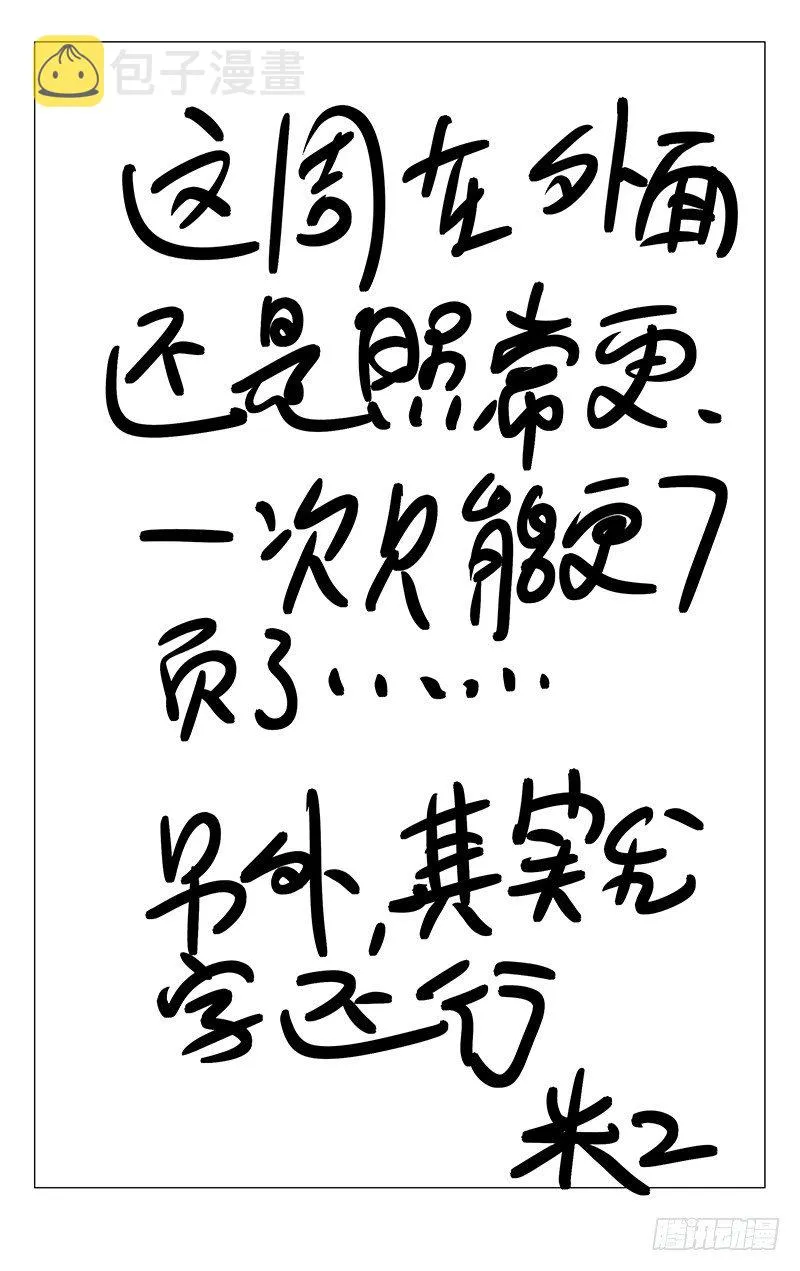 包子漫畫
这周在外面
还是照常更、
一次只能更7
页了……
另外,其实我
字还行
米2
腾讯动漫